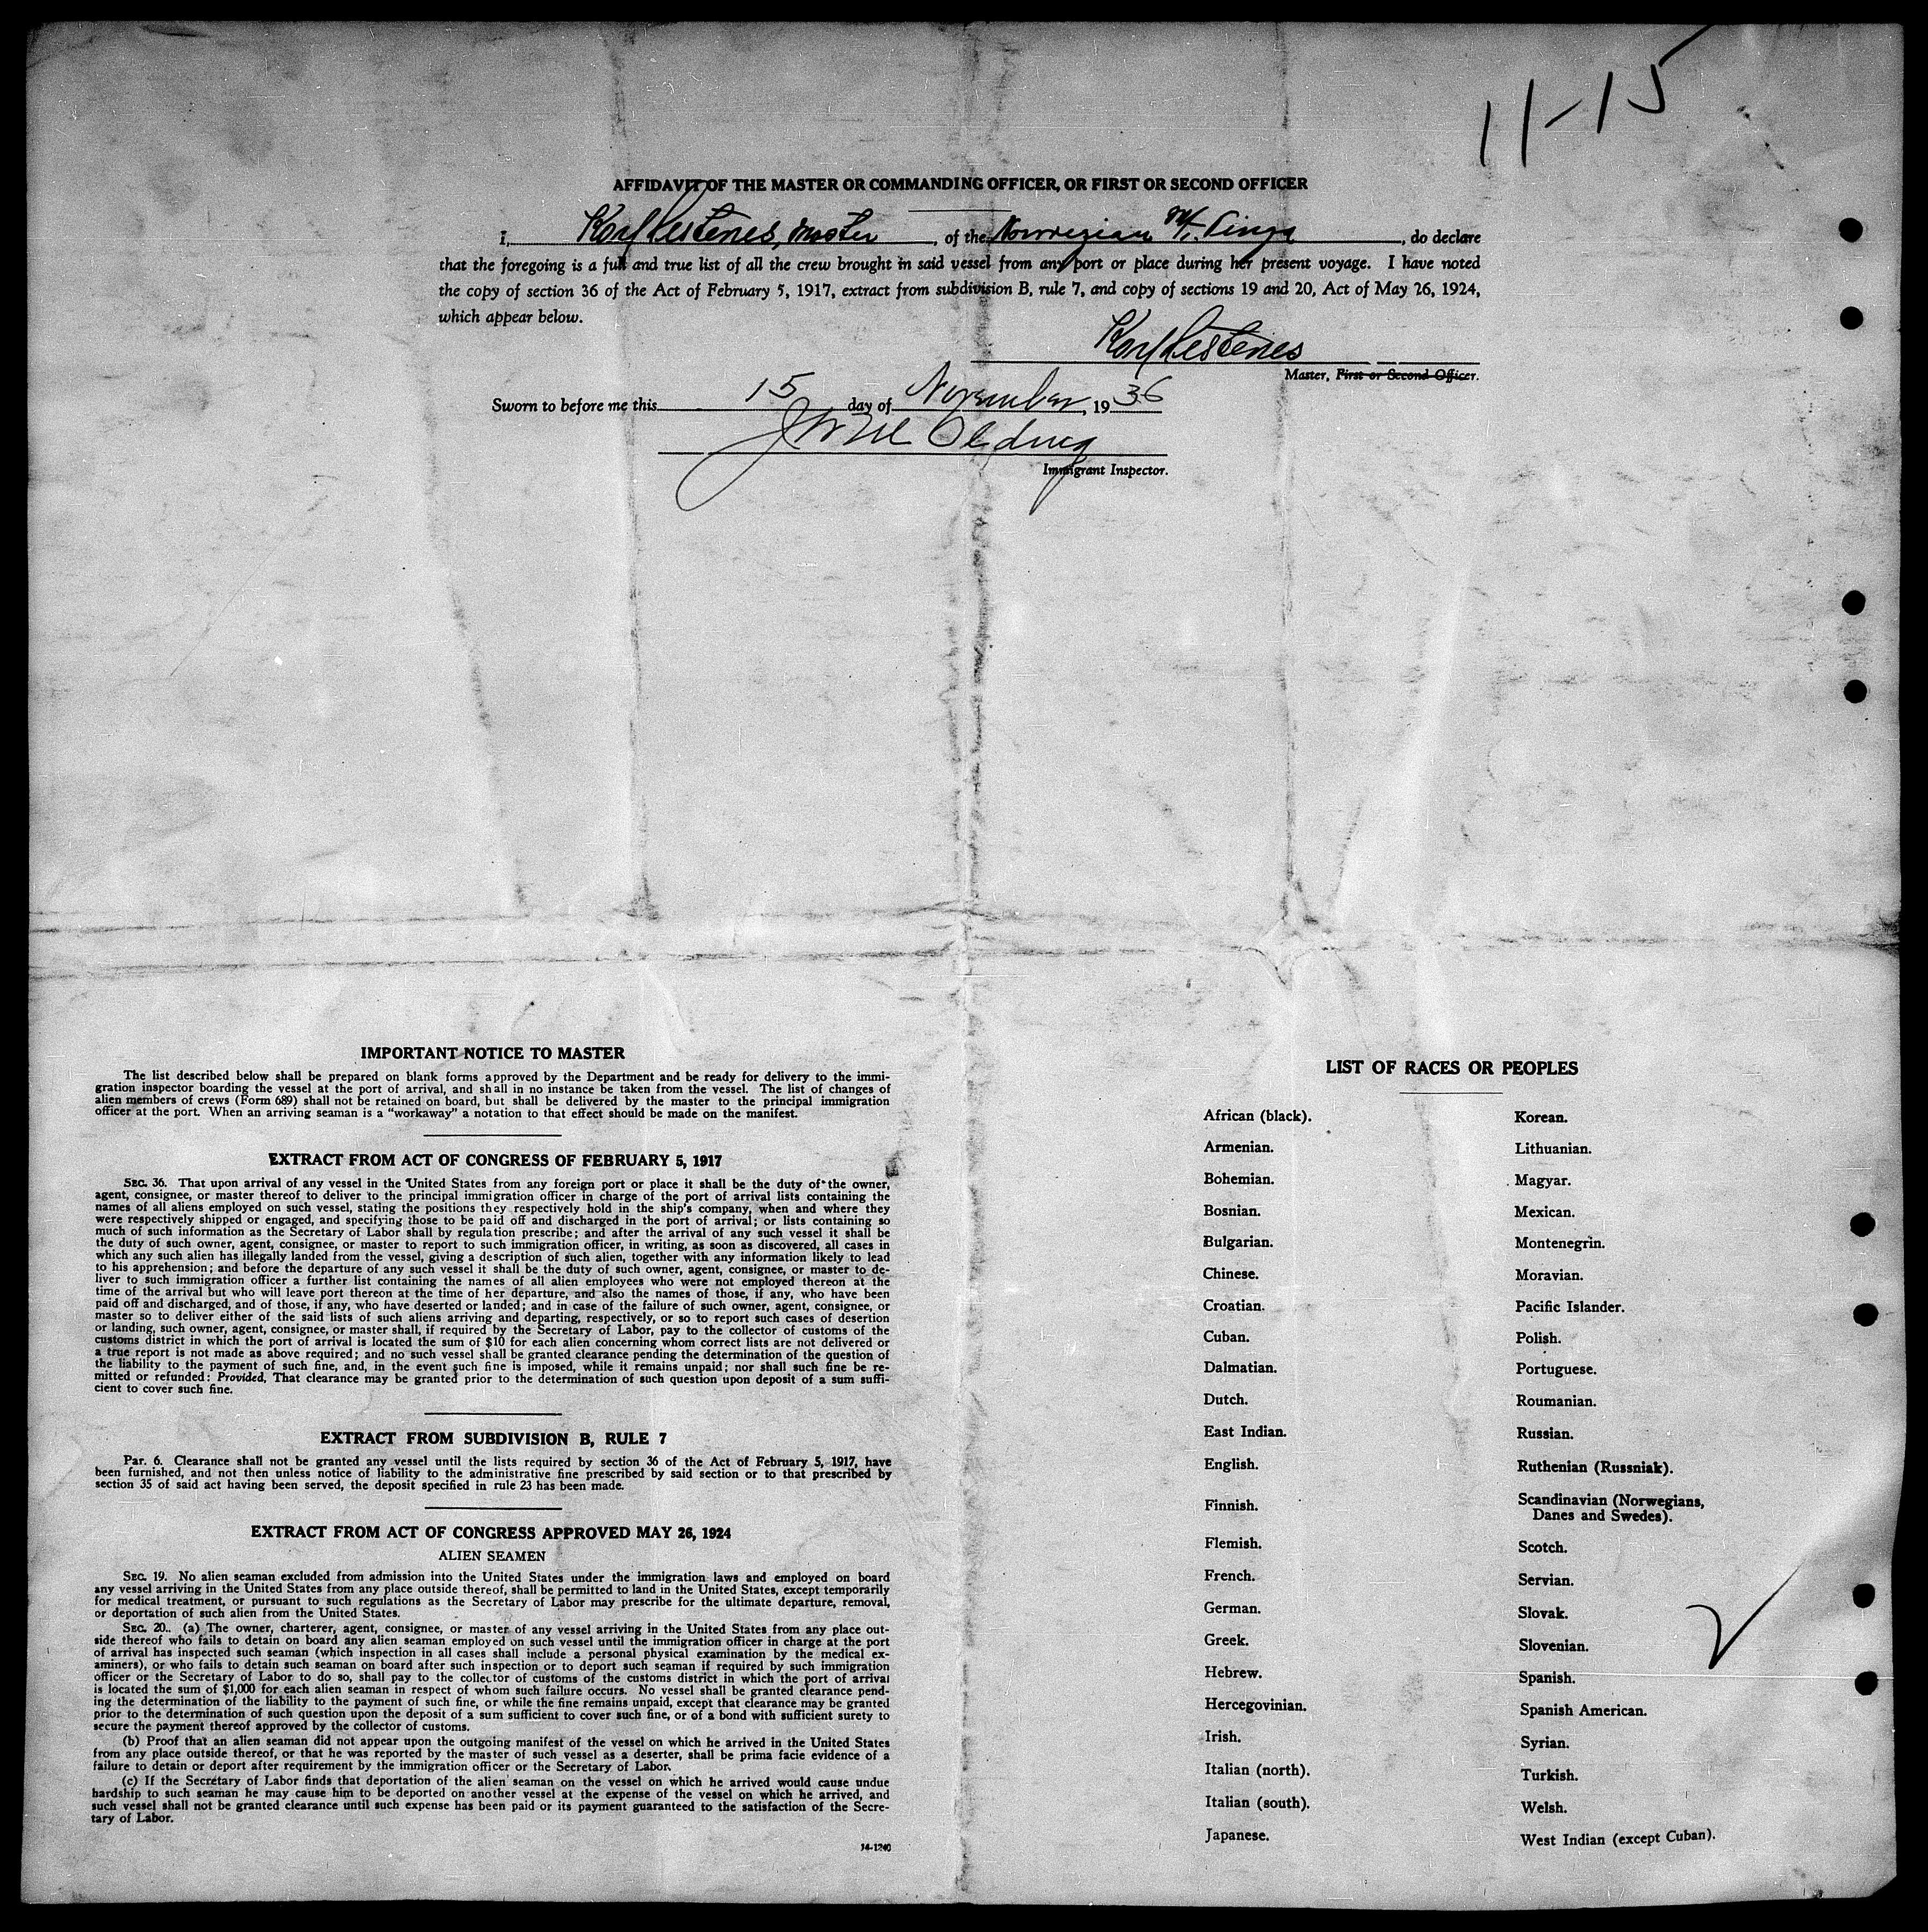 11-15
AFFIDAVIT OF THE MASTER OR COMMANDING OFFICER, OR FIRST OR SECOND OFFICER
I, Karl Lestenes, Master, of the Norwegian M/T. , do declare
that the foregoing is a full and true list of all the crew brought in said vessel from any port or place during her present voyage. I have noted
the copy of section 36 of the Act of February 5, 1917, extract from subdivision B, rule 7, and copy of sections 19 and 20, Act of May 26, 1924,
which appear below.
Karl Lestenes
Master, First or Second Officer.
Sworn to before me this 15 day of November, 1936
Immigrant Inspector.
IMPORTANT NOTICE TO MASTER
The list described below shall be prepared on blank forms approved by the Department and be ready for delivery to the immi-
gration inspector boarding the vessel at the port of arrival, and shall in no instance be taken from the vessel. The list of changes of
alien members of crews (Form 689) shall not be retained on board, but shall be delivered by the master to the principal immigration
officer at the port. When an arriving seaman is a "workaway" a notation to that effect should be made on the manifest.
EXTRACT FROM ACT OF CONGRESS OF FEBRUARY 5, 1917
SEC. 36. That upon arrival of any vessel in the United States from any foreign port or place it shall be the duty of the owner,
agent, consignee, or master thereof to deliver to the principal immigration officer in charge of the port of arrival lists containing the
names of all aliens employed on such vessel, stating the positions they respectively hold in the ship's company, when and where they
were respectively shipped or engaged, and specifying those to be paid off and discharged in the port of arrival; or lists containing so
much of such information as the Secretary of Labor shall by regulation prescribe; and after the arrival of any such vessel it shall be
the duty of such owner, agent, consignee, or master to report to such immigration officer, in writing, as soon as discovered, all cases in
which any such alien has illegally landed from the vessel, giving a description of such alien, together with any information likely to lead
to his apprehension; and before the departure of any such vessel it shall be the duty of such owner, agent, consignee, or master to de-
liver to such immigration officer a further list containing the names of all alien employees who were not employed thereon at the
time of the arrival but who will leave port thereon at the time of her departure, and also the names of those, if any, who have been
paid off and discharged, and of those, if any, who have deserted or landed; and in case of the failure of such owner, agent, consignee, or
master so to deliver either of the said lists of such aliens arriving and departing, respectively, or so to report such cases of desertion
or landing, such owner, agent, consignee, or master shall, if required by the Secretary of Labor, pay to the collector of customs of the
customs district in which the port of arrival is located the sum of $10 for each alien concerning whom correct lists are not delivered or
a true report is not made as above required; and no such vessel shall be granted clearance pending the determination of the question of
the liability to the payment of such fine, and, in the event such fine is imposed, while it remains unpaid; nor shall such fine be re-
mitted or refunded: Provided, That clearance may be granted prior to the determination of such question upon deposit of a sum suffi-
cient to cover such fine.
EXTRACT FROM SUBDIVISION B, RULE 7
Par. 6. Clearance shall not be granted any vessel until the lists required by section 36 of the Act of February 5, 1917, have
been furnished, and not then unless notice of liability to the administrative fine prescribed by said section or to that prescribed by
section 35 of said act having been served, the deposit specified in rule 23 has been made.
EXTRACT FROM ACT OF CONGRESS APPROVED MAY 26, 1924
ALIEN SEAMEN
SEC. 19. No alien seaman excluded from admission into the United States under the immigration laws and employed on board
any vessel arriving in the United States from any place outside thereof, shall be permitted to land in the United States, except temporarily
for medical treatment, or pursuant to such regulations as the Secretary of Labor may prescribe for the ultimate departure, removal,
or deportation of such alien from the United States.
SEC. 20. (a) The owner, charterer, agent, consignee, or master of any vessel arriving in the United States from any place out-
side thereof who fails to detain on board any alien seaman employed on such vessel until the immigration officer in charge at the port
of arrival has inspected such seaman (which inspection in all cases shall include a personal physical examination by the medical ex-
aminers), or who fails to detain such seaman on board after such inspection or to deport such seaman if required by such immigration
officer or the Secretary of Labor to do so, shall pay to the collector of customs of the customs district in which the port of arrival
is located the sum of $1,000 for each alien seaman in respect of whom such failure occurs. No vessel shall be granted clearance pend-
ing the determination of the liability to the payment of such fine, or while the fine remains unpaid, except that clearance may be granted
prior to the determination of such question upon the deposit of a sum sufficient to cover such fine, or of a bond with sufficient surety to
secure the payment thereof approved by the collector of customs.
(b) Proof that an alien seaman did not appear upon the outgoing manifest of the vessel on which he arrived in the United States
from any place outside thereof, or that he was reported by the master of such vessel as a deserter, shall be prima facie evidence of a
failure to detain or deport after requirement by the immigration officer or the Secretary of Labor.
(c) If the Secretary of Labor finds that deportation of the alien seaman on the vessel on which he arrived would cause undue
hardship to such seaman he may cause him to be deported on another vessel at the expense of the vessel on which he arrived, and
such vessel shall not be granted clearance until such expense has been paid or its payment guaranteed to the satisfaction of the Secre-
tary of Labor.
14-1240
LIST OF RACES OR PEOPLES
African (black).
Armenian.
Bohemian.
Bosnian.
Bulgarian.
Chinese.
Croatian.
Cuban.
Dalmatian.
Dutch.
East Indian.
English.
Finnish.
Flemish.
French.
German.
Greek.
Hebrew.
Hercegovinian.
Irish.
Italian (north).
Italian (south).
Japanese.
Korean.
Lithuanian.
Magyar.
Mexican.
Montenegrin.
Moravian.
Pacific Islander.
Polish.
Portuguese.
Roumanian.
Russian.
Ruthenian (Russniak).
Scandinavian (Norwegians,
Danes and Swedes).
Scotch.
Servian.
Slovak.
Slovenian.
Spanish.
Spanish American.
Syrian.
Turkish.
Welsh.
West Indian (except Cuban).